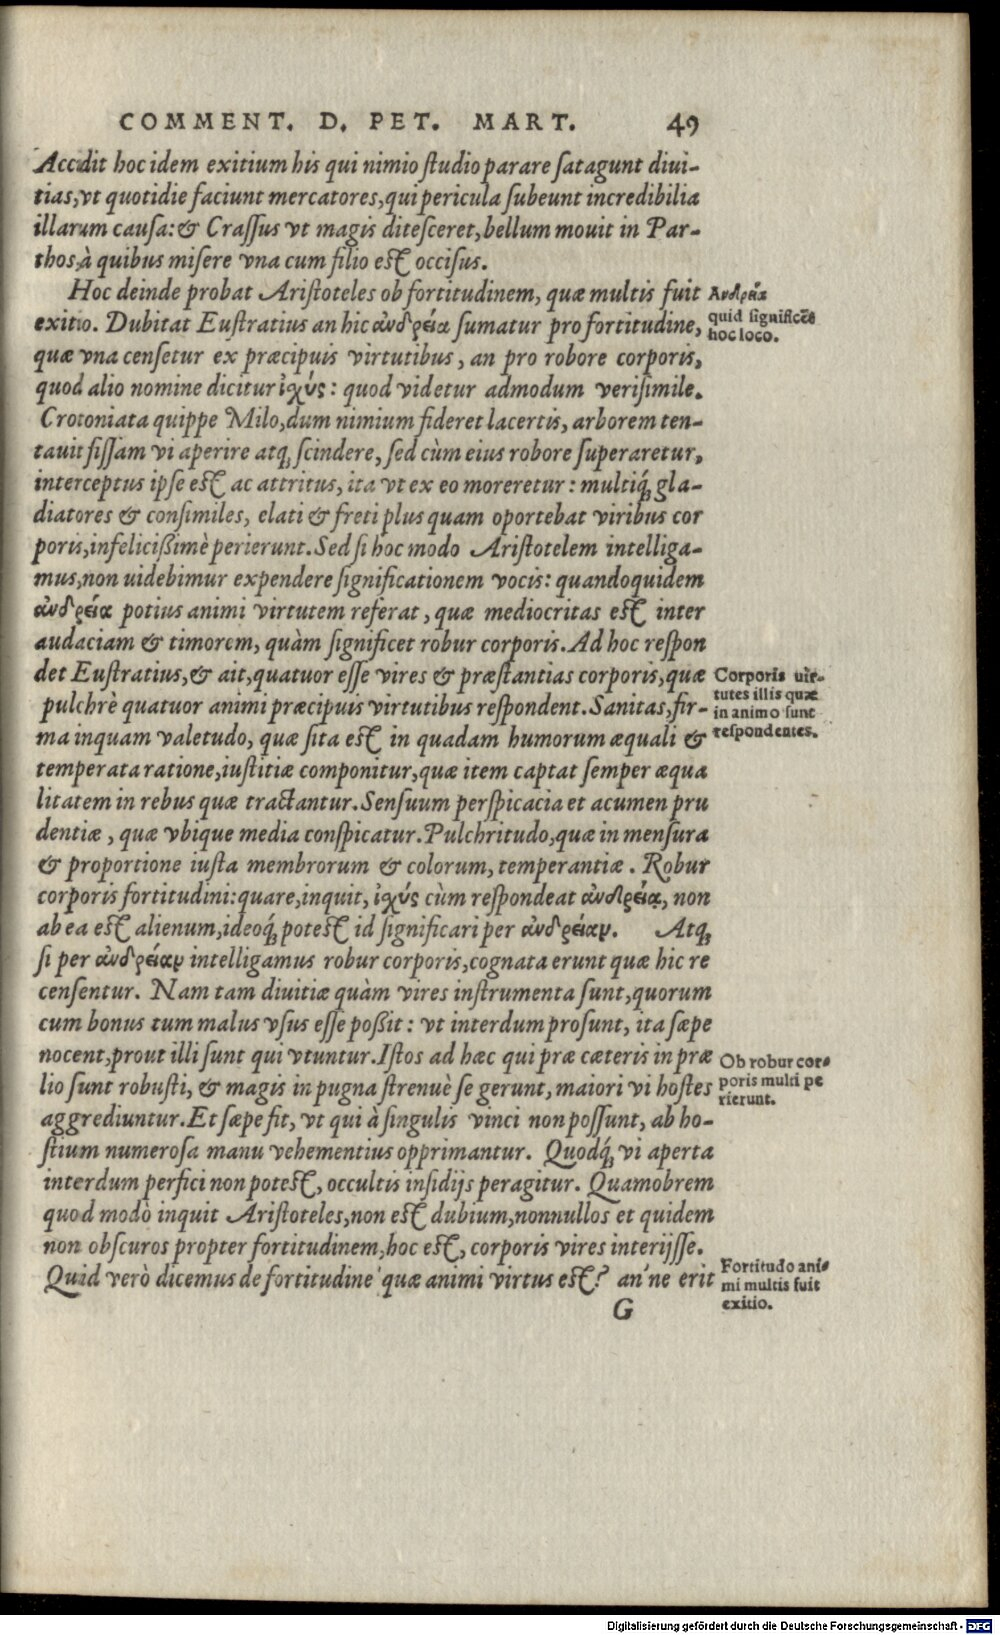 COMMENT. D. PET. MART. 49
Accidit hoc idem exitium his qui nimio ſtudio parare ſatagunt diui-
tias, vt quotidie faciunt mercatores, qui pericula ſubeunt incredibilia
illarum cauſa: & Craſſus vt magis diteſceret, bellum mouit in Par-
thos, à quibus miſere vna cum filio eſt occiſus.
Hoc deinde probat Ariſtoteles ob fortitudinem, quæ multis fuit
exitio. Dubitat Euſtratius an hic ἀνδρεία ſumatur pro fortitudine,
quæ vna cenſetur ex præcipuis virtutibus, an pro robore corporis,
quod alio nomine dicitur ἰχύς: quod videtur admodum veriſimile.
Crotoniata quippe Milo, dum nimium fideret lacertis, arborem ten-
tauit fiſſam vi aperire atq́; ſcindere, ſed cùm eius robore ſuperaretur,
interceptus ipſe eſt ac attritus, ita vt ex eo moreretur: multiq́; gla-
diatores & conſimiles, elati & freti plus quam oportebat viribus cor
poris, infelicißimè perierunt. Sed ſi hoc modo Ariſtotelem intelliga-
mus, non uidebimur expendere ſignificationem vocis: quandoquidem
ἀνδρεία potius animi virtutem referat, quæ mediocritas eſt inter
audaciam & timorem, quàm ſignificet robur corporis. Ad hoc reſpon
det Euſtratius, & ait, quatuor eſſe vires & præſtantias corporis, quæ
pulchrè quatuor animi præcipuis virtutibus reſpondent. Sanitas, fir-
ma inquam valetudo, quæ ſita eſt in quadam humorum æquali &
temperata ratione, iuſtitiæ componitur, quæ item captat ſemper æqua
litatem in rebus quæ tractantur. Senſuum perſpicacia et acumen pru
dentiæ, quæ vbique media conſpicatur. Pulchritudo, quæ in menſura
& proportione iuſta membrorum & colorum, temperantiæ. Robur
corporis fortitudini: quare, inquit, ἰχύς cùm reſpondeat ἀνδρείᾳ, non
ab ea eſt alienum, ideoq́; poteſt id ſignificari per ἀνδρείαν. Atq;
ſi per ἀνδρείαν intelligamus robur corporis, cognata erunt quæ hic re
cenſentur. Nam tam diuitiæ quàm vires inſtrumenta ſunt, quorum
cum bonus tum malus vſus eſſe poßit: vt interdum proſunt, ita ſæpe
nocent, prout illi ſunt qui vtuntur. Iſtos ad hæc qui præ cæteris in præ
lio ſunt robuſti, & magis in pugna ſtrenuè ſe gerunt, maiori vi hoſtes
aggrediuntur. Et ſæpe fit, vt qui à ſingulis vinci non poſſunt, ab ho-
ſtium numeroſa manu vehementius opprimantur. Quodq́; vi aperta
interdum perfici non poteſt, occultis inſidijs peragitur. Quamobrem
quod modò inquit Ariſtoteles, non eſt dubium, nonnullos et quidem
non obſcuros propter fortitudinem, hoc eſt, corporis vires interijſſe.
Quid verò dicemus de fortitudine quæ animi virtus eſt? an'ne erit
G
Ανδρεία
quid ſignificet
hoc loco.
Corporis uir-
tutes illis quæ
in animo ſunt
reſpondentes.
Ob robur cor-
poris multi pe
rierunt.
Fortitudo ani-
mi multis fuit
exitio.
Digitalisierung gefördert durch die Deutsche Forschungsgemeinschaft - DFG